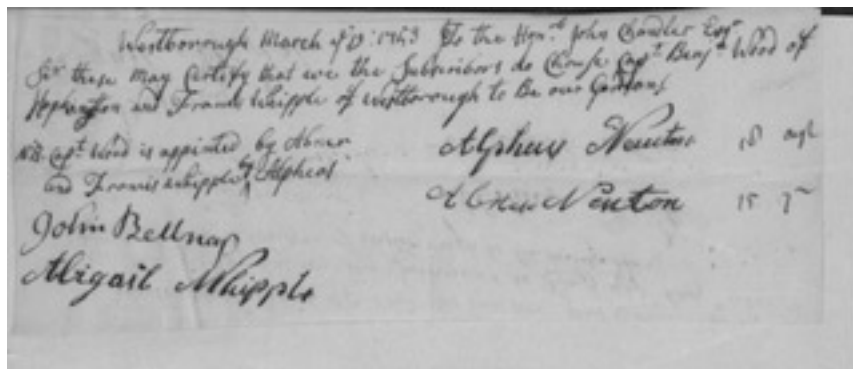 Westborough March ye D: 1763 To the Honrl John Chandler Esqr
Sir these may Certify that we the Subscribors do Chuse Capt Benja Wood of
Hopkington and Francis Whipple of Westborough to Be our Gardans
NB Capt Wood is appinted by Abner Alpheus Newton 18
and Francis Whipple by Alpheas Abner Newton 15
John Bellnap
Abigail Whipple